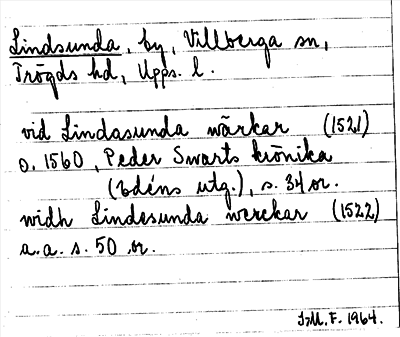 Lindsunda, by, Villberga sn,
Trögds hd, Upps. l.
vid Lindasunda wärkar (1521)
o. 1560, Peder Swarts krönika
(Edéns utg.), s. 34 or.
widh Lindesunda werckar (1522)
a.a. s. 50 or.
I.M.F. 1964.